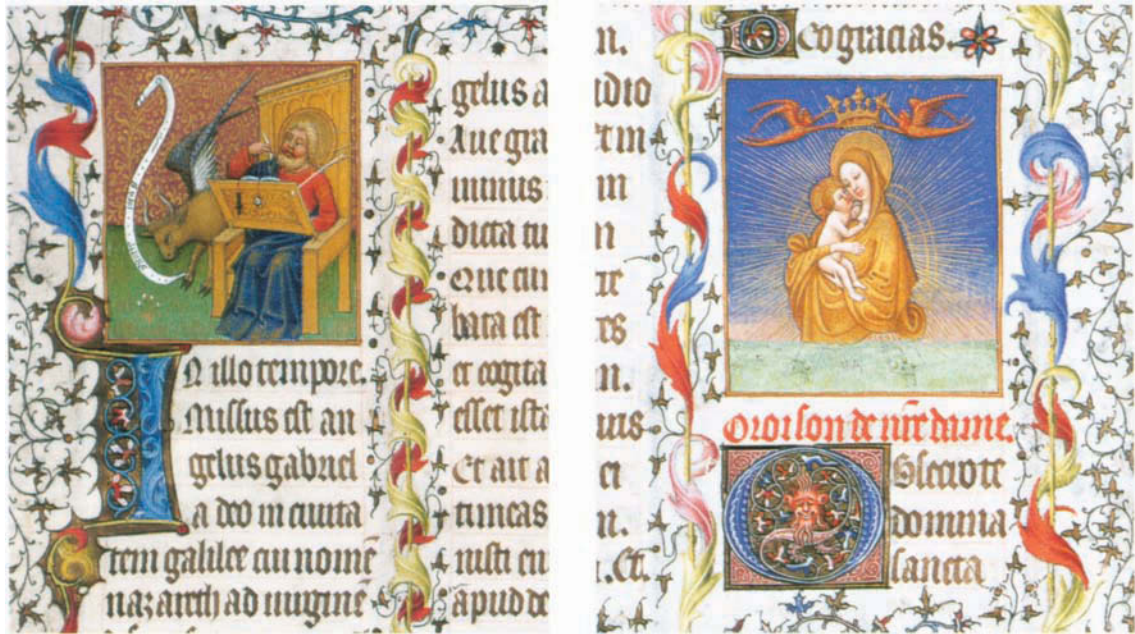 In illo tempore.
Missus est an
gelus gabriel
a deo in ciuita
tem galilee cui nomē
nazareth ad uirginē
gelus a
Aue gra
minus
dicta tu
Que cum
bata est
et cogita
esset ista
Et ait a
timeas
nisti en
apud de
n.
dio
n.
n.
Deo gracias.
Oroison de nr̄e dame.
Obsecro te
domina
sancta